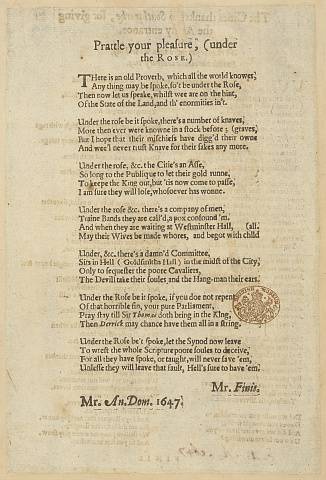 Prattle your pleasure, (under
the ROSE.)
THere is an old Proverb, which all the world knowes,
Any thing may be spoke, so't be under the Rose,
Then now let us speake, whilst we are on the hint,
Of the State of the Land, and th' enormities in't.
Under the rose be it spoke, there's a number of knaves,
More then ever were knowne in a stock before; (graves,
But I hope that their mischiefs have digg'd their owne
And wee'l never trust Knave for their sakes any more.
Under the rose, &c. the Citie's an Asse,
So long to the Publique to let their gold runne,
To keepe the King out, but 'tis now come to passe,
I am sure they will lose, whosoever has wonne.
Under the rose &c. there's a company of men,
Traine Bands they are call'd, a pox confound 'm.
And when they are waiting at Westminster Hall, (all.
May their Wives be made whores, and begot with child
Under, &c. there's a damn'd Committee,
Sits in Hell (Goldsmiths Hall) in the midst of the City,
Only to sequester the poore Cavaliers,
The Devill take their soules, and the Hang-man their ears.
Under the Rose be it spoke, if you doe not repent
Of that horrible sin, your pure Parliament,
Pray stay till Sir Thomas doth bring in the King,
Then Derrick may chance have them all in a string.
Under the Rose be't spoke, let the Synod now leave
To wrest the whole Scripture poore soules to deceive,
For all they have spoke, or taught, will never save 'em,
Unlesse they will leave that fault, Hell's sure to have 'em.
Mr. Finis.
Mr. An. Dom. 1647.